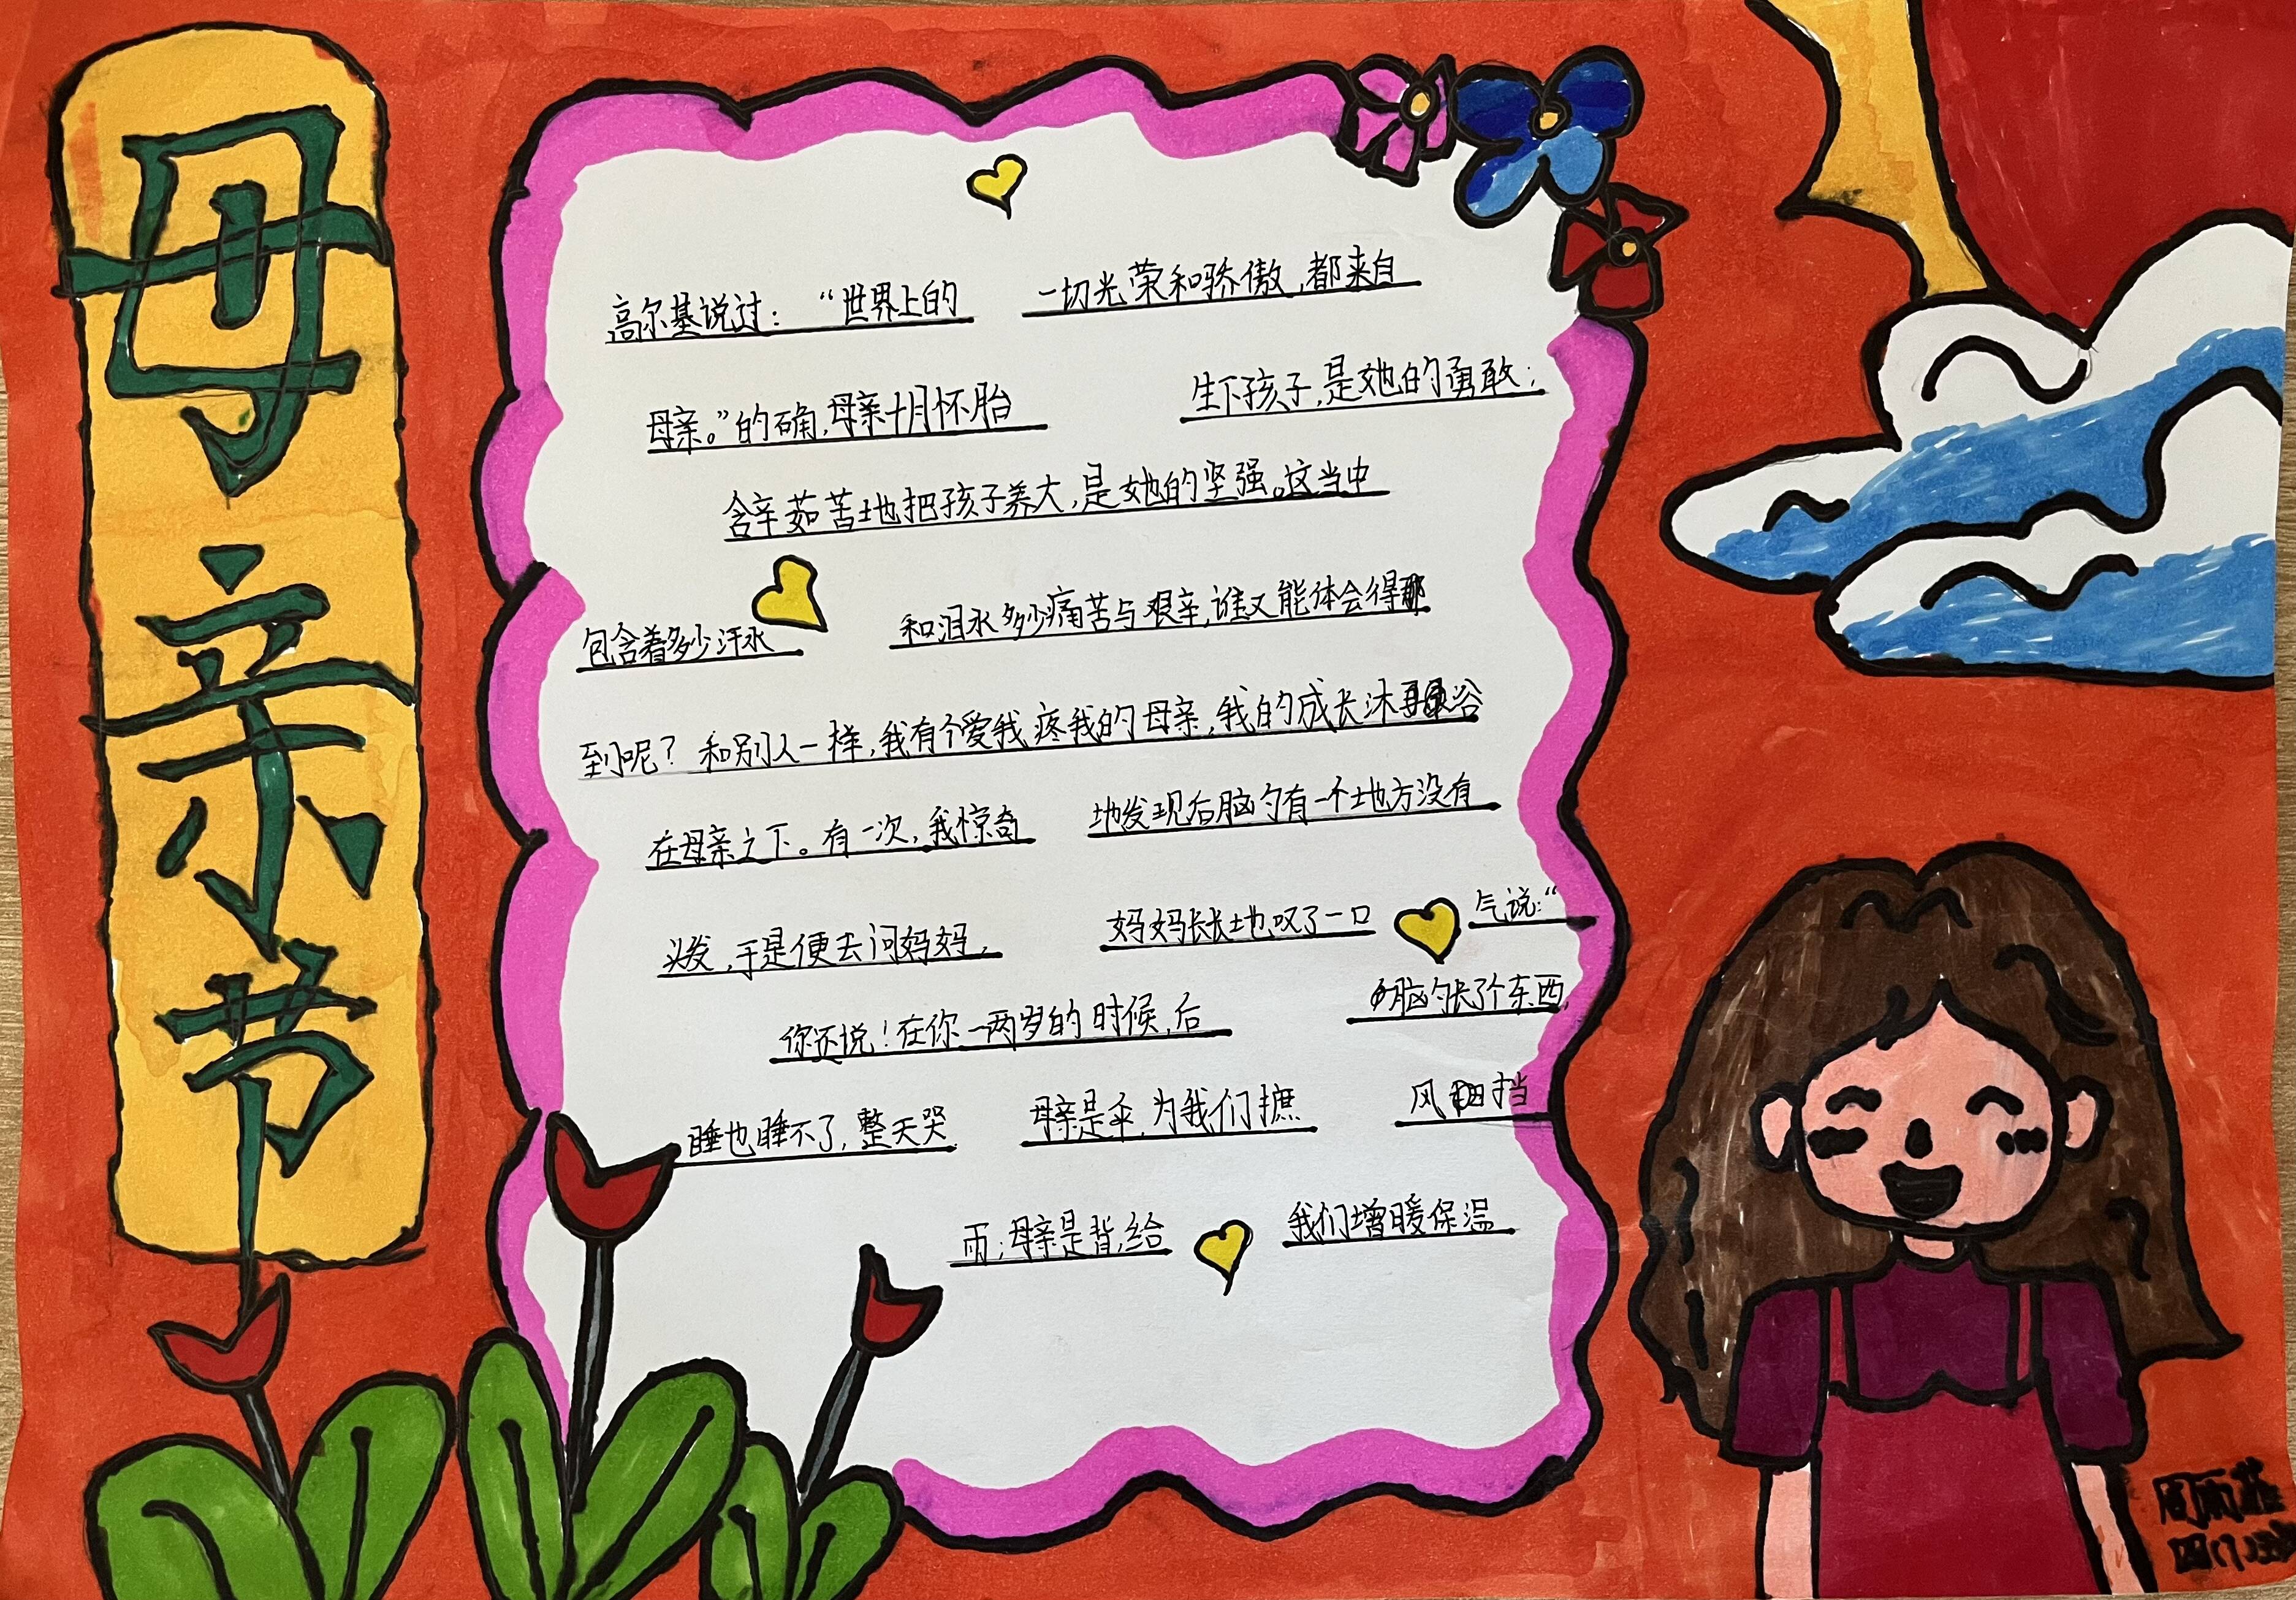 母亲节
高尔基说过：“世界上的 一切光荣和骄傲，都来自
母亲。”的确，母亲十月怀胎 生下孩子，是她的勇敢；
含辛茹苦地把孩子养大，是她的坚强。这当中
包含着多少汗水 和泪水多少痛苦与艰辛，谁又能体会得那
到呢？和别人一样，我有个爱我疼我的母亲，我的成长沐浴
在母亲之下。有一次，我惊奇 地发现后脑勺有一个地方没有
头发，于是便去问妈妈， 妈妈长长地叹了一口 气说：“
你还说！在你一两岁的时候，后 脑勺长了个东西，
睡也睡不了，整天哭 母亲是伞，为我们摭 风 挡
雨；母亲是背，给 我们增暖保温
周雨